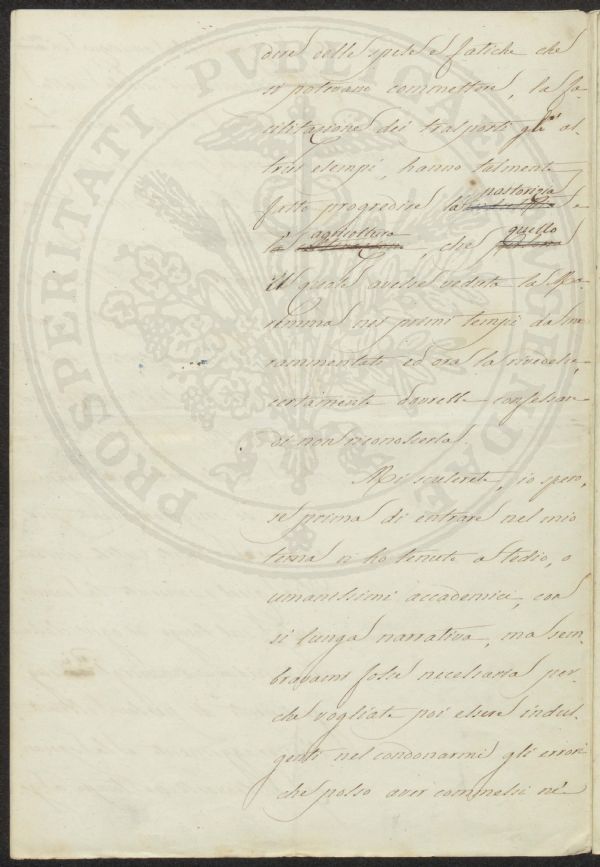 PROSPERITATI PUBLICAE AUGENDAE
dire delle spese e fatiche che
si potevano commettere, la fa-
cilitazione dei trasporti gli al-
trui esempi, hanno talmente
fatto progredire la pastorizia e
la agricoltura, che quello
il quale avesse veduta la Ma-
remma nei primi tempi da me
rammentati ed ora la rivedesse,
certamente dovrebbe confessare
di non riconoscerla.
Mi scuserete, io spero,
se prima di entrare nel mio
tema vi ho tenuto a tedio, o
umanissimi accademici, con
sì lunga narrativa, ma sem-
bravami fosse necessaria per-
che vogliate poi essere indul-
genti nel condonarmi gli errori
che posso aver commessi nè